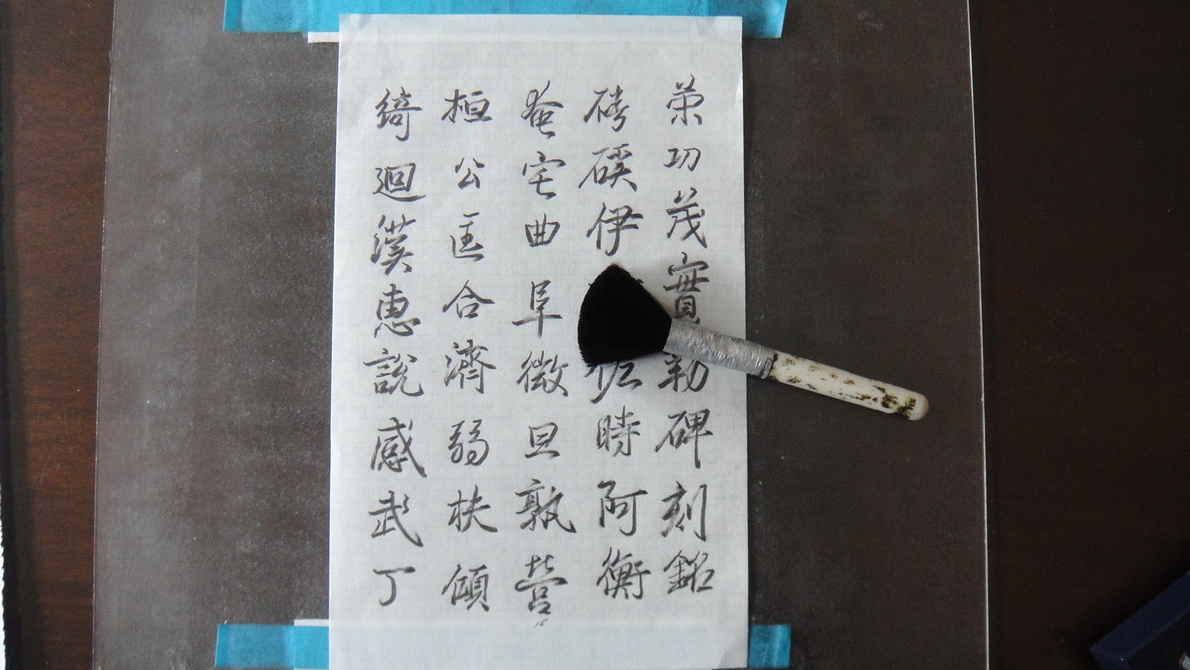 策功茂實勒碑刻銘
磻磎伊佐時阿衡
奄宅曲阜微旦孰營
桓公匡合濟弱扶傾
綺迴漢恵說感武丁